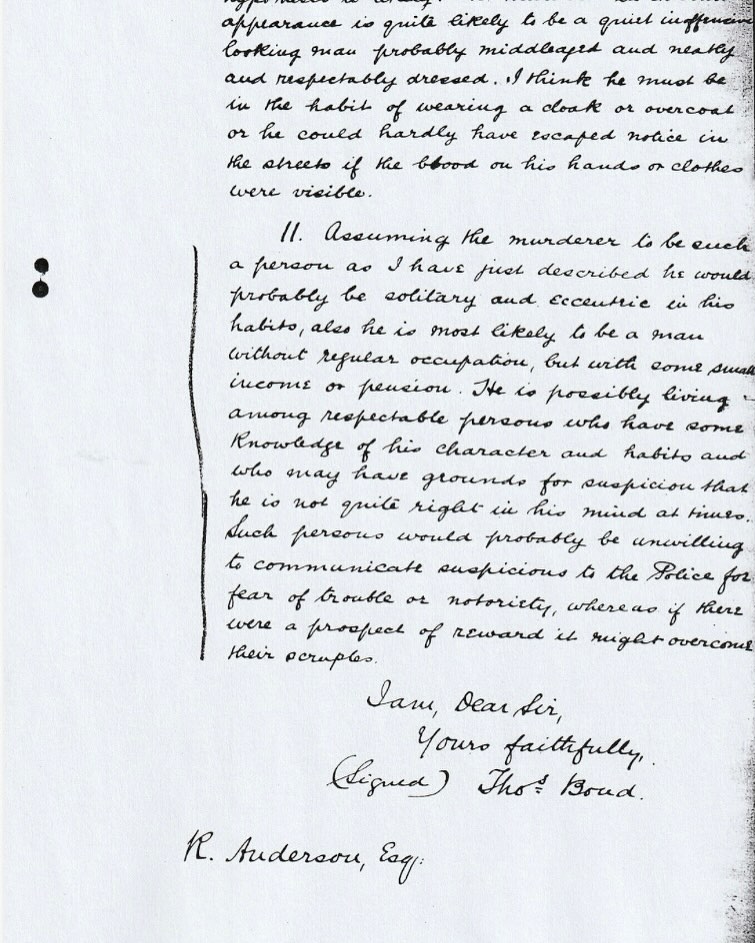 appearance is quite likely to be a quiet inoffensive
looking man probably middleaged and neatly
and respectably dressed. I think he must be
in the habit of wearing a cloak or overcoat
or he could hardly have escaped notice in
the streets if the blood on his hands or clothes
were visible.
11. Assuming the murderer to be such
a person as I have just described he would
probably be solitary and eccentric in his
habits, also he is most likely to be a man
without regular occupation, but with some small
income or pension. He is possibly living
among respectable persons who have some
knowledge of his character and habits and
who may have grounds for suspicion that
he is not quite right in his mind at times.
Such persons would probably be unwilling
to communicate suspicious to the Police for
fear of trouble or notoriety, whereas if there
were a prospect of reward it might overcome
their scruples.
I am, Dear Sir,
Yours faithfully,
(Signed) Thos. Bond.
R. Anderson, Esq.